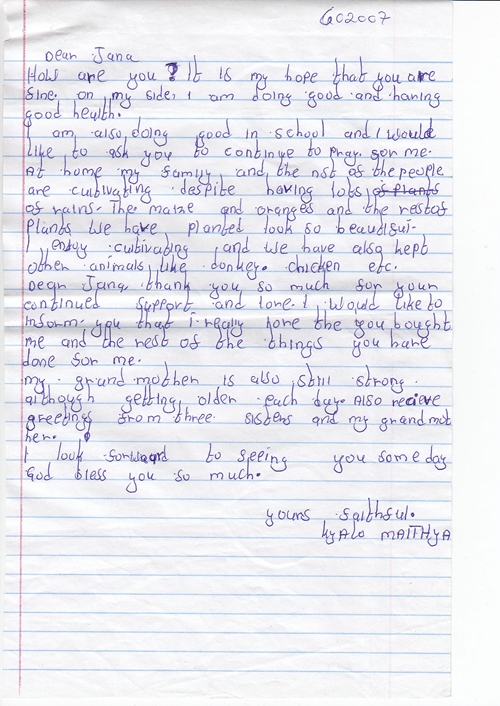 GC2007
Dear Jana
How are you? It is my hope that you are
fine. on my side, I am doing good and having
good health.
I am also doing good in school and I would
like to ask you to continue to pray for me.
At home my family and the rest of the people
are cultivating despite having lots of plants
of rains. The maize and oranges and the rest of
plants we have planted look so beautiful.
I enjoy cultivating and we have also kept
other animals like donkey. chicken etc.
Dear Jana thank you so much for your
continued support and love. I would like to
inform you that i really love the you bought
me and the rest of the things you have
done for me.
my grand mother is also still strong.
although getting older each day. Also recieve
greetings from three sisters and my grand mot
her.
I look forward to seeing you some day
God bless you so much.
yours faithful.
kyALO MAITHyA